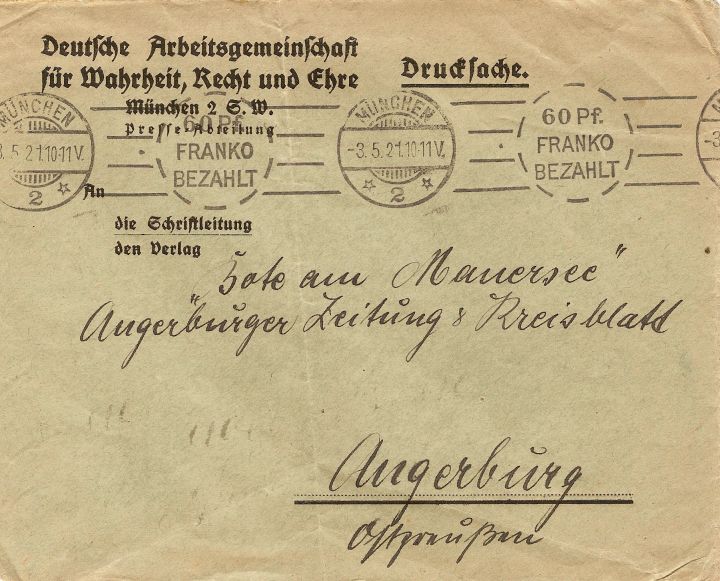 Deutsche Arbeitsgemeinschaft
für Wahrheit, Recht und Ehre
Drucksache.
München 2 S. W.
Presse-Abteilung
MÜNCHEN
3.5.21.10-11V.
2
60 Pf.
FRANKO
BEZAHLT
MÜNCHEN
-3.5.21.10-11V.
2
60 Pf.
FRANKO
BEZAHLT
An
die Schriftleitung
den Verlag
"Bote am Mauersee"
Angerburger Zeitung & Kreisblatt
Angerburg
Ostpreußen